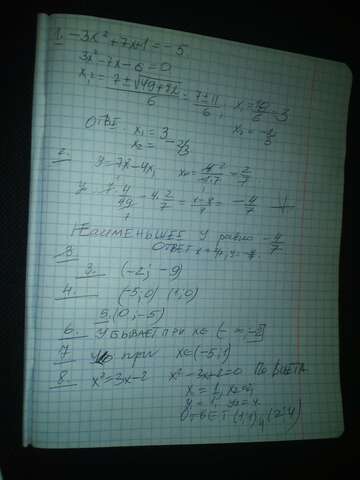 1. -3x²+7x+1=-5
3x²-7x-6=0
x₁,₂= 7±√49+72 / 6 = 7±11 / 6; x₁= =3
x₂=-2/3
ОТВЕТ: x₁=3
x₂=-2/3
2. y=7x²-4x, x₀= = 2/7
y= 7·4/49 -4·2/7 = 4-8/7 = -4/7
НАИМЕНЬШЕЕ y равно -4/7
3
ОТВЕТ
3. (-2; -9)
4. (-5;0) (1;0)
5.(0;-5)
6. УБЫВАЕТ ПРИ x∈(-∞;-2]
7 при x∈(-5;1)
8. x²=3x-2 x²-3x+2=0 По ВИЕТА
x₁=1, x₂=2,
y₁=1, y₂=4.
ОТВЕТ (1;1), (2;4)